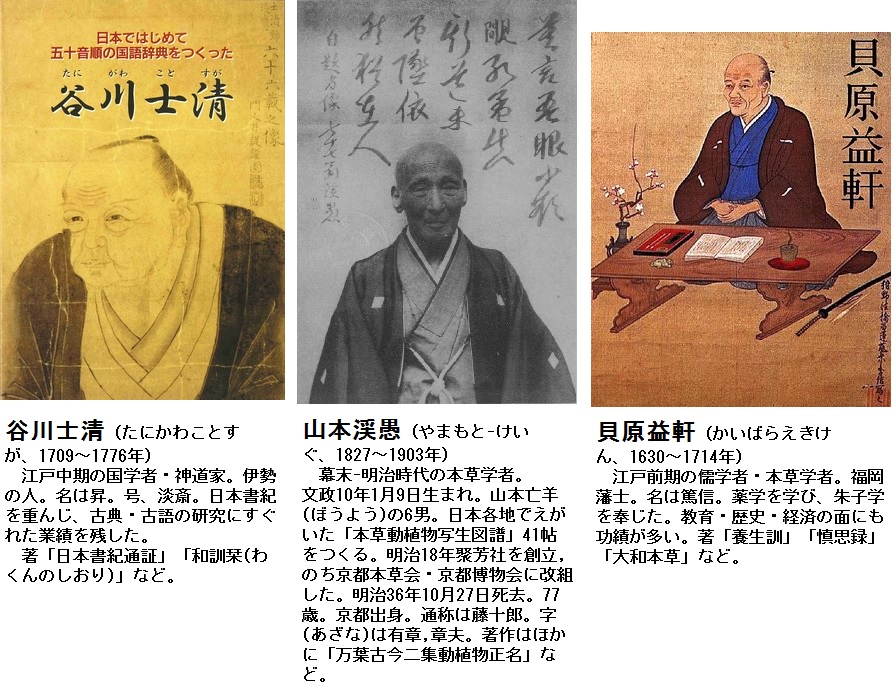 日本ではじめて
五十音順の国語辞典をつくった
たに がわ こと すが
谷川士清
六十六歳之像
貝原益軒
谷川士清 (たにかわことす
が、1709～1776年)
江戸中期の国学者・神道家。伊勢
の人。名は昇。号、淡斎。日本書紀
を重んじ、古典・古語の研究にすぐ
れた業績を残した。
著「日本書紀通証」「和訓栞(わ
くんのしおり)」など。
山本渓愚 (やまもと-けい
ぐ、1827～1903年)
幕末-明治時代の本草学者。
文政10年1月9日生まれ。山本亡羊
(ほうよう)の6男。日本各地でえが
いた「本草動植物写生図譜」41帖
をつくる。明治18年聚芳社を創立,
のち京都本草会・京都博物会に改組
した。明治36年10月27日死去。77
歳。京都出身。通称は藤十郎。字
(あざな)は有章,章夫。著作はほか
に「万葉古今二集動植物正名」な
ど。
貝原益軒 (かいばらえきけ
ん、1630～1714年)
江戸前期の儒学者・本草学者。福岡
藩士。名は篤信。薬学を学び、朱子学
を奉じた。教育・歴史・経済の面にも
功績が多い。著「養生訓」「慎思録」
「大和本草」など。